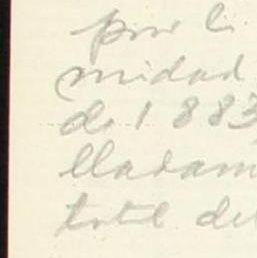 por l
midad
de 1883
lladam
total del